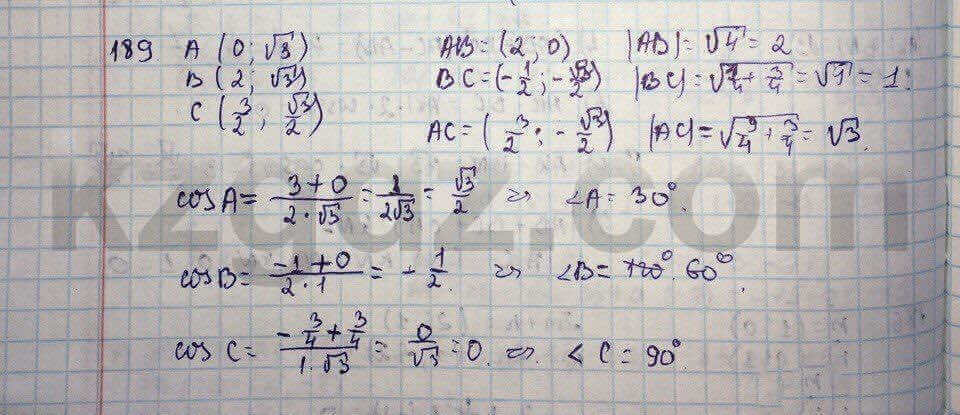 189 A (0; √3) AB = (2; 0) |AB| = √4 = 2
B (2; √3) BC = (-1/2; -√3/2) |BC| = √(1/4 + 3/4) = √1 = 1.
C (3/2; √3/2)
AC = (3/2; -√3/2) |AC| = √(9/4 + 3/4) = √3.
cos A = (3+0)/(2·√3) = 3/(2√3) = √3/2 => ∠A = 30°.
cos B = (-1+0)/(2·1) = -1/2. => ∠B = 120° 60°.
cos C = (-3/4 + 3/4)/(1·√3) = 0/√3 = 0. => ∠C = 90°.
kzgdz.com